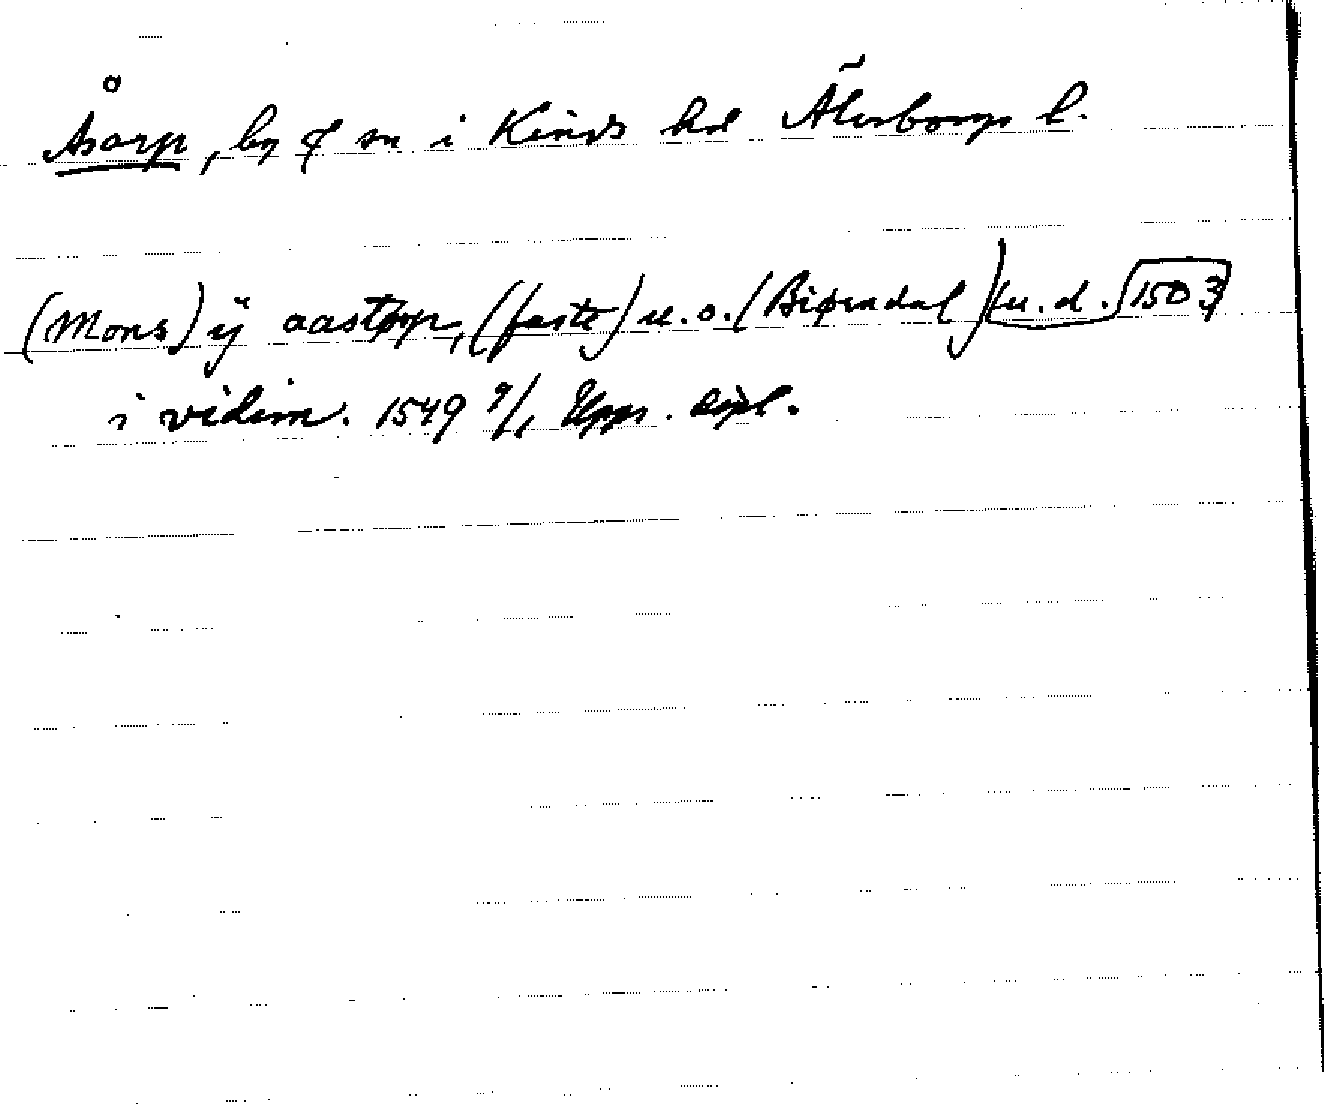 Åsarp, by o sn i Kinds hd Älvsborgs l.
(Mons) ij aastørp, (faste) u. o. (Biørndal) (u. d. 1503)
i vidim. 1549 9/1 Upps. dipl.